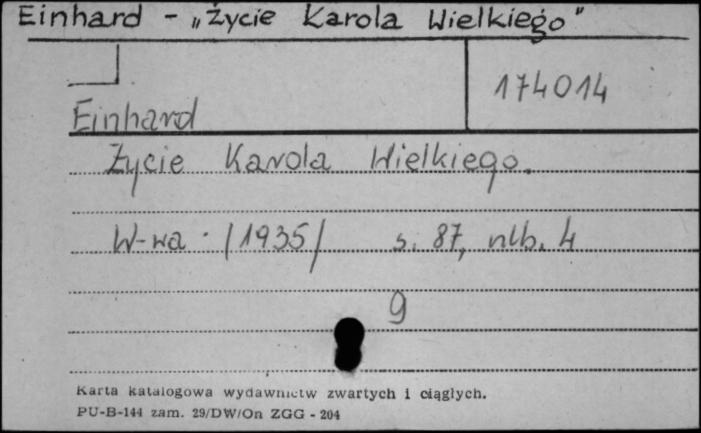 Einhard - „Życie Karola Wielkiego"
174014
Einhard
Życie Karola Wielkiego.
W-wa · /1935/ s. 87, nlb. 4
9
Karta katalogowa wydawnictw zwartych i ciągłych.
PU-B-144 zam. 29/DW/On ZGG - 204